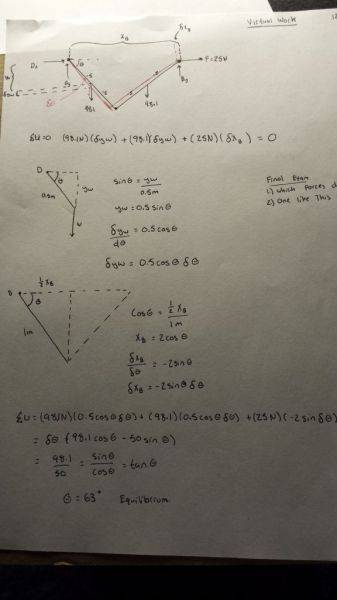 Virtual Work
xB
δxB
Dx
θ
F=25N
yw
δyw
.5
.5
.5
.5
δθ
By
98.1
98.1
δU=0 (98.1N)(δyw) + (98.1)(δyw) + (25N)(δxB) = 0
D
θ
0.5m
yw
W
sinθ = yw / 0.5m
yw = 0.5 sinθ
δyw / dθ = 0.5cosθ
δyw = 0.5cosθ δθ
Final Exam
1) Which forces d
2) One like This
½ xB
θ
1m
cosθ = ½ xB / 1m
xB = 2cosθ
δxB / δθ = -2sinθ
δxB = -2sinθ δθ
δU = (98.1N)(0.5cosθ δθ) + (98.1)(0.5cosθ δθ) + (25N)(-2sinθ δθ)
= δθ (98.1cosθ - 50sinθ)
= 98.1 / 50 = sinθ / cosθ = tanθ
θ = 63° Equilibrium